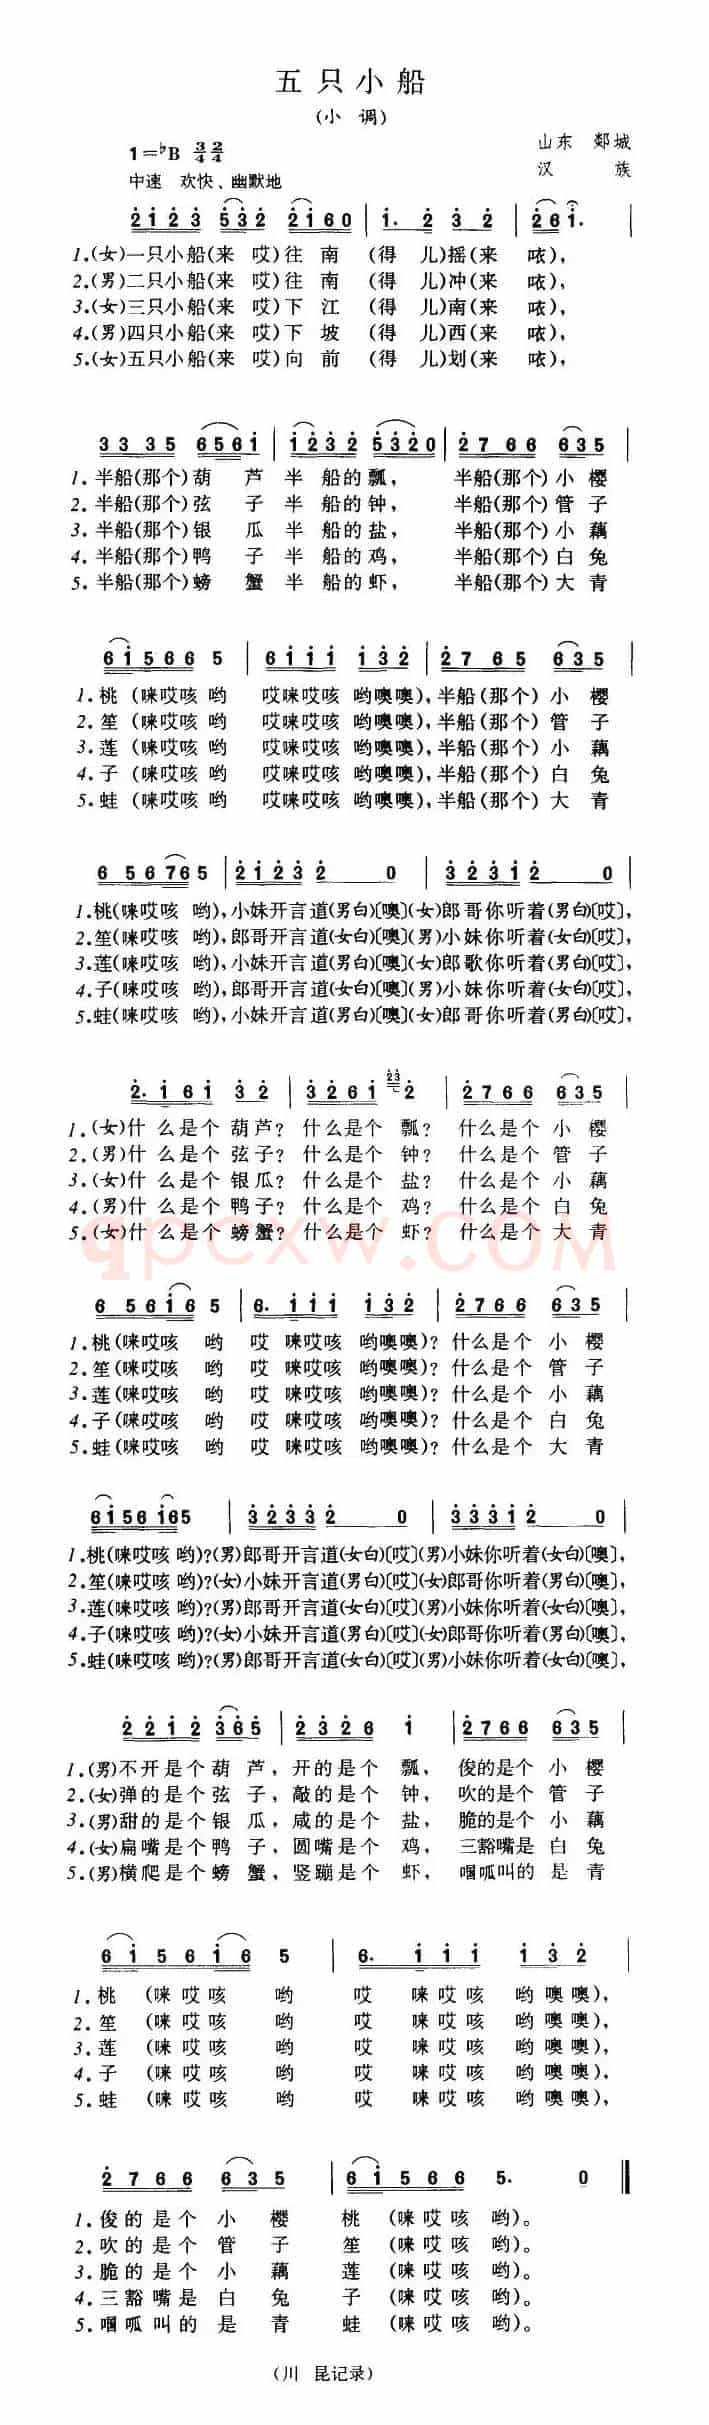 五只小船
(小 调)
1=♭B 3/4 2/4
山东 郯城
汉 族
中速 欢快、幽默地
2 1 2 3 5 3 2 2 1 6 0 | 1· 2 3 2 | 2 6 1· |
1.(女)一只小船(来 哎)往 南 (得 儿)摇(来 咴),
2.(男)二只小船(来 哎)往 南 (得 儿)冲(来 咴),
3.(女)三只小船(来 哎)下 江 (得 儿)南(来 咴),
4.(男)四只小船(来 哎)下 坡 (得 儿)西(来 咴),
5.(女)五只小船(来 哎)向 前 (得 儿)划(来 咴),
3 3 3 5 6 5 6 1 | 1 2 3 2 5 3 2 0 | 2 7 6 6 6 3 5 |
1.半船(那个)葫 芦 半 船的瓢, 半船(那个)小 樱
2.半船(那个)弦 子 半 船的钟, 半船(那个)管 子
3.半船(那个)银 瓜 半 船的盐, 半船(那个)小 藕
4.半船(那个)鸭 子 半 船的鸡, 半船(那个)白 兔
5.半船(那个)螃 蟹 半 船的虾, 半船(那个)大 青
6 1 5 6 6 5 | 6 1 1 1 1 3 2 | 2 7 6 5 6 3 5 |
1.桃 (咪哎咳 哟 哎咪哎咳 哟噢噢),半船(那个) 小 樱
2.笙 (咪哎咳 哟 哎咪哎咳 哟噢噢),半船(那个) 管 子
3.莲 (咪哎咳 哟 哎咪哎咳 哟噢噢),半船(那个) 小 藕
4.子 (咪哎咳 哟 哎咪哎咳 哟噢噢),半船(那个) 白 兔
5.蛙 (咪哎咳 哟 哎咪哎咳 哟噢噢),半船(那个) 大 青
6 5 6 7 6 5 | 2 1 2 3 2 0 | 3 2 3 1 2 0 |
1.桃(咪哎咳 哟),小妹开言道(男白)〔噢〕(女)郎哥你听着(男白)〔哎〕,
2.笙(咪哎咳 哟),郎哥开言道(女白)〔噢〕(男)小妹你听着(女白)〔哎〕,
3.莲(咪哎咳 哟),小妹开言道(男白)〔噢〕(女)郎歌你听着(男白)〔哎〕,
4.子(咪哎咳 哟),郎哥开言道(女白)〔噢〕(男)小妹你听着(女白)〔哎〕,
5.蛙(咪哎咳 哟),小妹开言道(男白)〔噢〕(女)郎哥你听着(男白)〔哎〕,
2· 1 6 1 3 2 | 3 2 6 1 2 3 2 | 2 7 6 6 6 3 5 |
1.(女)什 么是个 葫芦? 什么是个 瓢? 什么是个 小 樱
2.(男)什 么是个 弦子? 什么是个 钟? 什么是个 管 子
3.(女)什 么是个 银瓜? 什么是个 盐? 什么是个 小 藕
4.(男)什 么是个 鸭子? 什么是个 鸡? 什么是个 白 兔
5.(女)什 么是个 螃蟹? 什么是个 虾? 什么是个 大 青
qpcxw.COM
6 5 6 1 6 5 | 6· 1 1 1 1 3 2 | 2 7 6 6 6 3 5 |
1.桃(咪哎咳 哟 哎 咪哎咳 哟噢噢)? 什么是个 小 樱
2.笙(咪哎咳 哟 哎 咪哎咳 哟噢噢)? 什么是个 管 子
3.莲(咪哎咳 哟 哎 咪哎咳 哟噢噢)? 什么是个 小 藕
4.子(咪哎咳 哟 哎 咪哎咳 哟噢噢)? 什么是个 白 兔
5.蛙(咪哎咳 哟 哎 咪哎咳 哟噢噢)? 什么是个 大 青
6 1 5 6 1 6 5 | 3 2 3 3 2 0 | 3 3 3 1 2 0 |
1.桃(咪哎咳 哟)?(男)郎哥开言道(女白)〔哎〕(男)小妹你听着(女白)〔噢〕,
2.笙(咪哎咳 哟)?(女)小妹开言道(男白)〔哎〕(女)郎哥你听着(男白)〔噢〕,
3.莲(咪哎咳 哟)?(男)郎哥开言道(女白)〔哎〕(男)小妹你听着(女白)〔噢〕,
4.子(咪哎咳 哟)?(女)小妹开言道(男白)〔哎〕(女)郎哥你听着(男白)〔噢〕,
5.蛙(咪哎咳 哟)?(男)郎哥开言道(女白)〔哎〕(男)小妹你听着(女白)〔噢〕,
2 2 1 2 3 6 5 | 2 3 2 6 1 | 2 7 6 6 6 3 5 |
1.(男)不开是个 葫 芦, 开的是个 瓢, 俊的是个 小 樱
2.(女)弹的是个 弦 子, 敲的是个 钟, 吹的是个 管 子
3.(男)甜的是个 银 瓜, 咸的是个 盐, 脆的是个 小 藕
4.(女)扁嘴是个 鸭 子, 圆嘴是个 鸡, 三豁嘴是 白 兔
5.(男)横爬是个 螃 蟹, 竖蹦是个 虾, 啯呱叫的 是 青
6 1 5 6 1 6 5 | 6· 1 1 1 1 3 2 |
1.桃 (咪哎咳 哟 哎 咪哎咳 哟噢噢),
2.笙 (咪哎咳 哟 哎 咪哎咳 哟噢噢),
3.莲 (咪哎咳 哟 哎 咪哎咳 哟噢噢),
4.子 (咪哎咳 哟 哎 咪哎咳 哟噢噢),
5.蛙 (咪哎咳 哟 哎 咪哎咳 哟噢噢),
2 7 6 6 6 3 5 | 6 1 5 6 6 5· 0 ‖
1.俊的是个 小 樱 桃 (咪哎咳 哟)。
2.吹的是个 管 子 笙 (咪哎咳 哟)。
3.脆的是个 小 藕 莲 (咪哎咳 哟)。
4.三豁嘴是 白 兔 子 (咪哎咳 哟)。
5.啯呱叫的 是 青 蛙 (咪哎咳 哟)。
(川 昆记录)